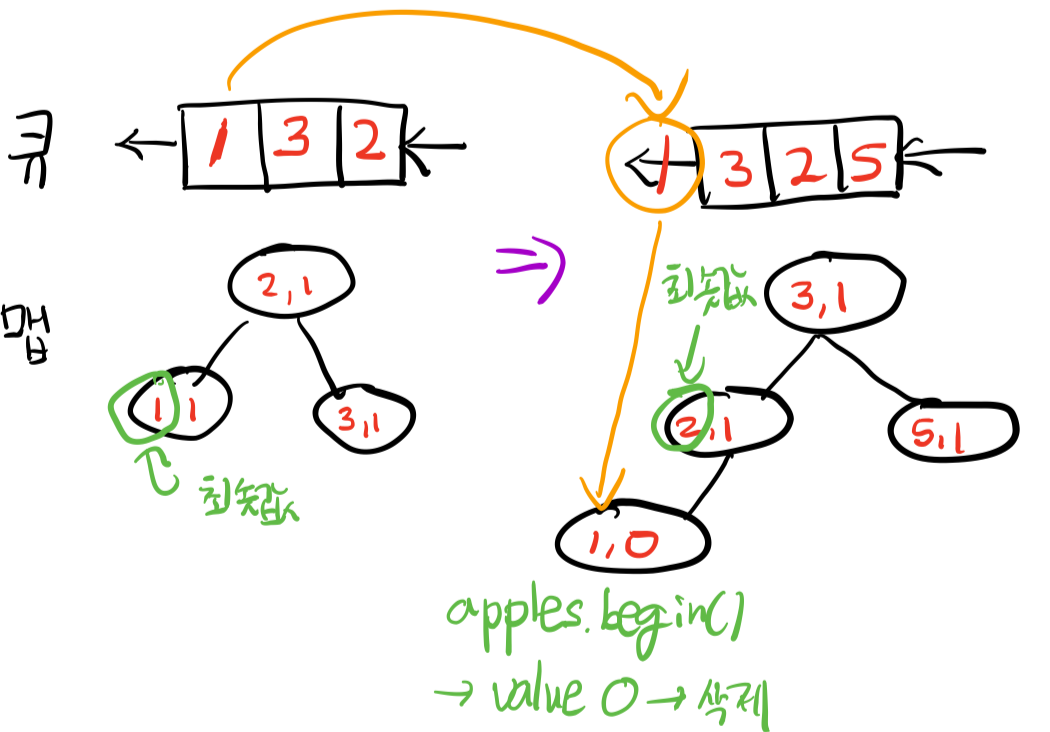 큐
1 3 2
1 3 2 5
맵
2,1
1 1
3,1
최솟값
최솟값
3,1
2,1
5,1
1,0
apples.begin()
→ value 0 → 삭제